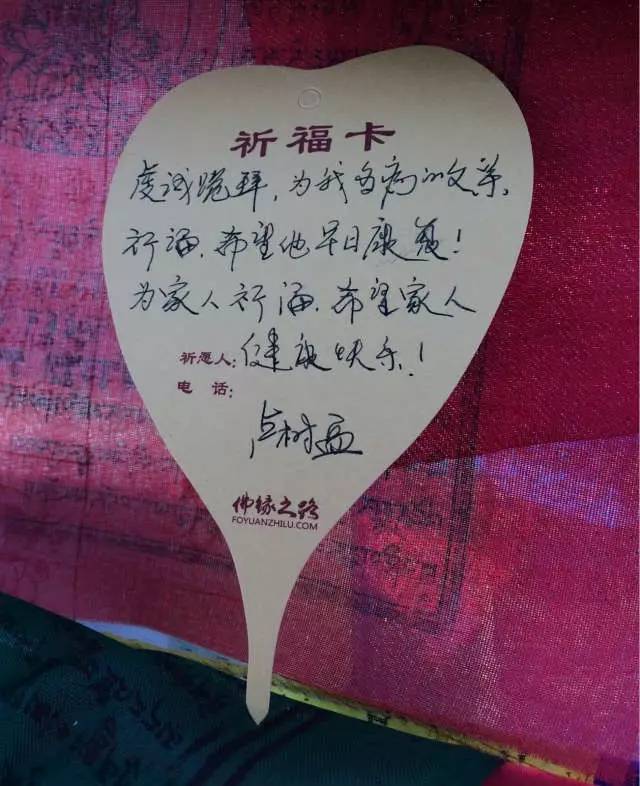 祈福卡
虔诚跪拜，为我多病的父亲、
祈福、希望他早日康复！
为家人祈福、希望家人
祈愿人：健康快乐！
电 话：
卢树
佛缘之路
FOYUANZHILU.COM